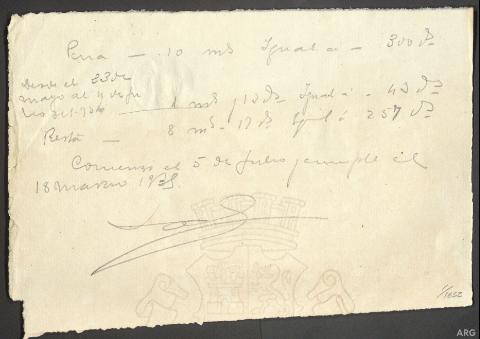 Pena — 10 ms Igual a - 300 Ds
Desde el 23 de
mayo al 4 de Ju
lio de 1.934 — 1 ms y 13 Ds Igual a - 43 Ds
Resta — 8 ms - 17 Ds Igual a 257 Ds
Comienza el 5 de Julio y cumple el
18 marzo 1935.
1/1652
ARG